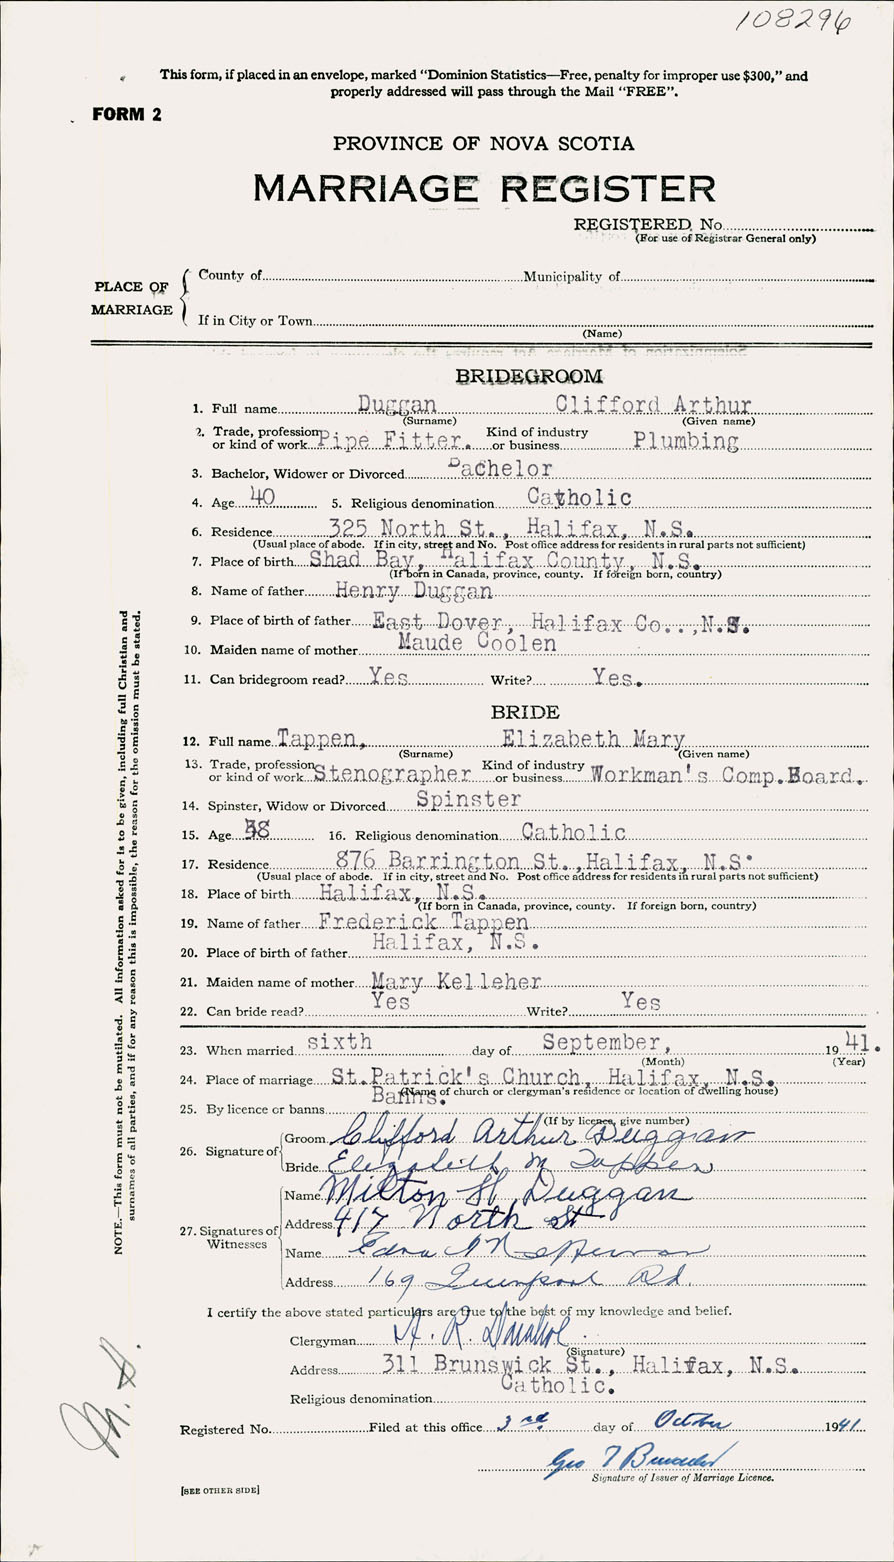 108296
This form, if placed in an envelope, marked "Dominion Statistics—Free, penalty for improper use $300," and
properly addressed will pass through the Mail "FREE".
FORM 2
PROVINCE OF NOVA SCOTIA
MARRIAGE REGISTER
REGISTERED No.
(For use of Registrar General only)
PLACE OF MARRIAGE
County of Municipality of
If in City or Town
(Name)
BRIDEGROOM
1. Full name Duggan Clifford Arthur
(Surname) (Given name)
2. Trade, profession or kind of work Pipe Fitter. Kind of industry or business Plumbing
3. Bachelor, Widower or Divorced Bachelor
4. Age 40 5. Religious denomination Catholic
6. Residence 325 North St., Halifax, N.S.
(Usual place of abode. If in city, street and No. Post office address for residents in rural parts not sufficient)
7. Place of birth Shad Bay, Halifax County, N.S.
(If born in Canada, province, county. If foreign born, country)
8. Name of father Henry Duggan
9. Place of birth of father East Dover, Halifax Co..,N.S.
10. Maiden name of mother Maude Coolen
11. Can bridegroom read? Yes Write? Yes.
BRIDE
12. Full name Tappen, Elizabeth Mary
(Surname) (Given name)
13. Trade, profession or kind of work Stenographer Kind of industry or business Workman's Comp.Board.
14. Spinster, Widow or Divorced Spinster
15. Age 38 16. Religious denomination Catholic
17. Residence 876 Barrington St.,Halifax, N.S.
(Usual place of abode. If in city, street and No. Post office address for residents in rural parts not sufficient)
18. Place of birth Halifax, N.S.
(If born in Canada, province, county. If foreign born, country)
19. Name of father Frederick Tappen
20. Place of birth of father Halifax, N.S.
21. Maiden name of mother Mary Kelleher
22. Can bride read? Yes Write? Yes
23. When married sixth day of September, 19 41.
(Month) (Year)
24. Place of marriage St.Patrick's Church, Halifax, N.S.
(Name of church or clergyman's residence or location of dwelling house)
25. By licence or banns Banns.
(If by licence, give number)
26. Signature of
Groom Clifford Arthur Duggan
Bride Elizabeth M Tappen
27. Signatures of Witnesses
Name Milton H Duggan
Address 417 North St
Name Edna
Address 169 Quinpool Rd.
I certify the above stated particulars are true to the best of my knowledge and belief.
Clergyman A. R. Donahoe
(Signature)
Address 311 Brunswick St., Halifax, N.S.
Religious denomination Catholic.
Registered No. Filed at this office 3rd day of October 1941
Geo T
Signature of Issuer of Marriage Licence.
[SEE OTHER SIDE]
NOTE.—This form must not be mutilated. All information asked for is to be given, including full Christian and
surnames of all parties, and if for any reason this is impossible, the reason for the omission must be stated.